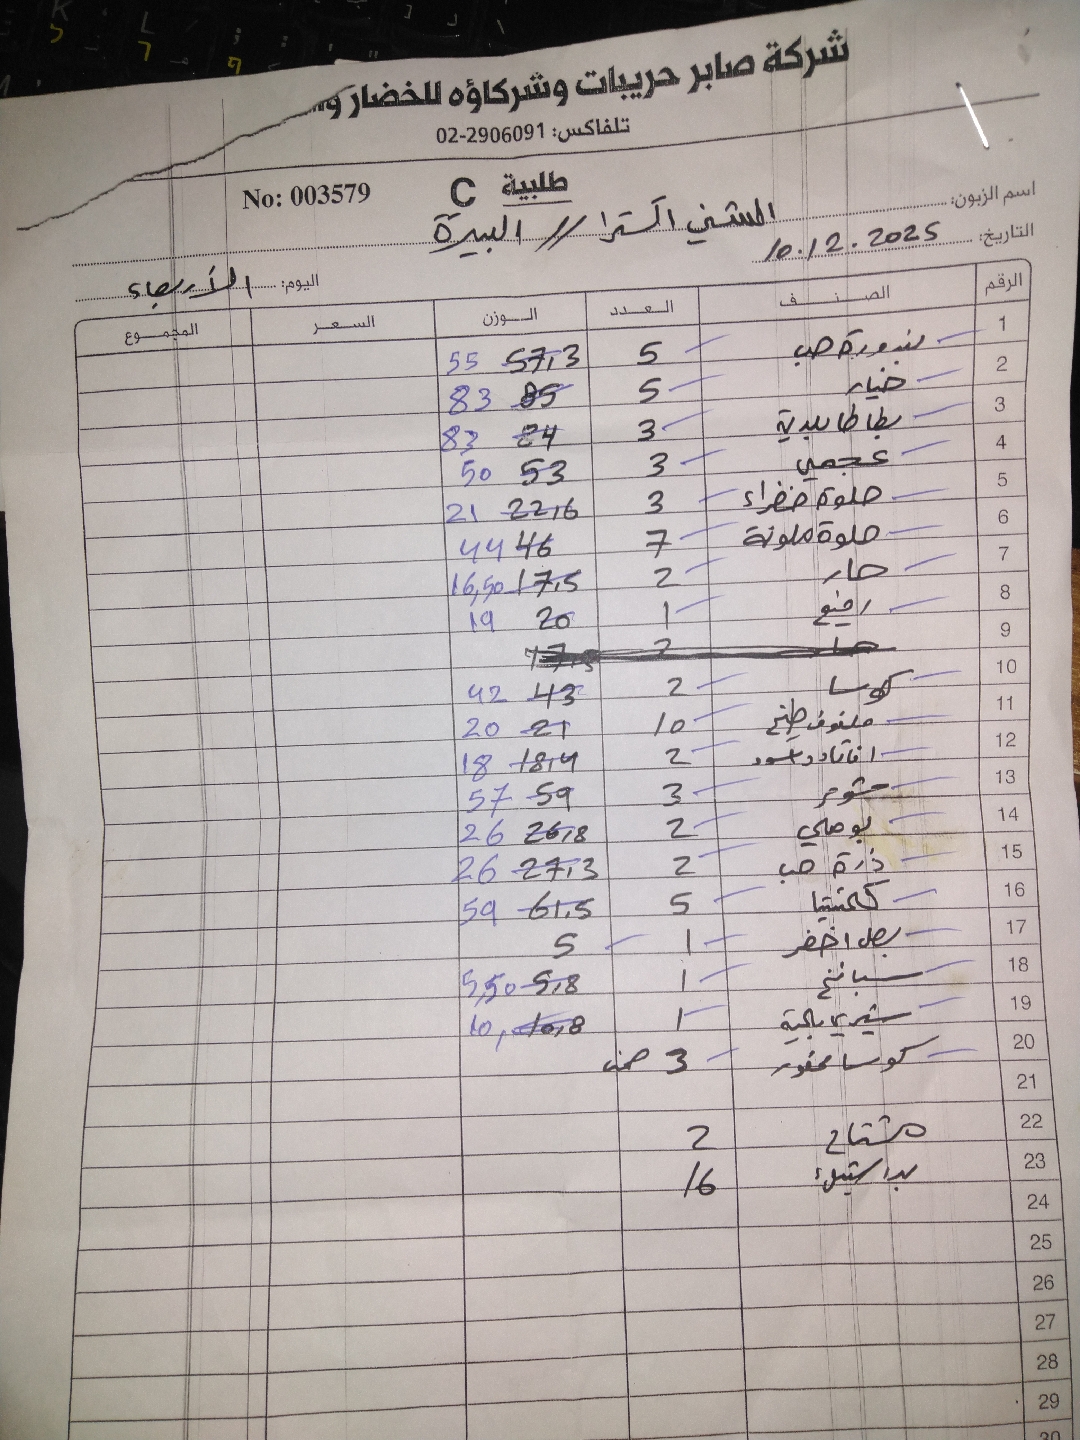 شركة صابر حريبات وشركاؤه للخضار وا
تلفاكس: 02-2906091
طلبية C No: 003579
اسم الزبون: المشني اكسترا // البيرة
التاريخ: 10.12.2025
اليوم: الأربعاء
الرقم الصنف العدد الوزن السعر المجموع
1 بندورة حب 5 57,3 55
2 خيار 5 85 83
3 بطاطا بلدية 3 84 83
4 عجمي 3 53 50
5 حلوة خضراء 3 22,6 21
6 حلوة ملونة 7 46 44
7 حار 2 17,5 16,50
8 رفيع 1 20 19
9 حار 2 17,5
10 كوسا 2 43 42
11 ملفوف طبخ 10 21 20
12 اسود 2 18,4 18
13 3 59 57
14 بوملي 2 26,8 26
15 ذرة حب 2 27,3 26
16 كلمنتينا 5 61,5 59
17 بصل اخضر 1 5
18 سبانخ 1 5,8 5,50
19 شيري 1 10,8 10,
20 كوسا محفور 3 صحن
21
22 مشتاح 2
23 16
24
25
26
27
28
29
30